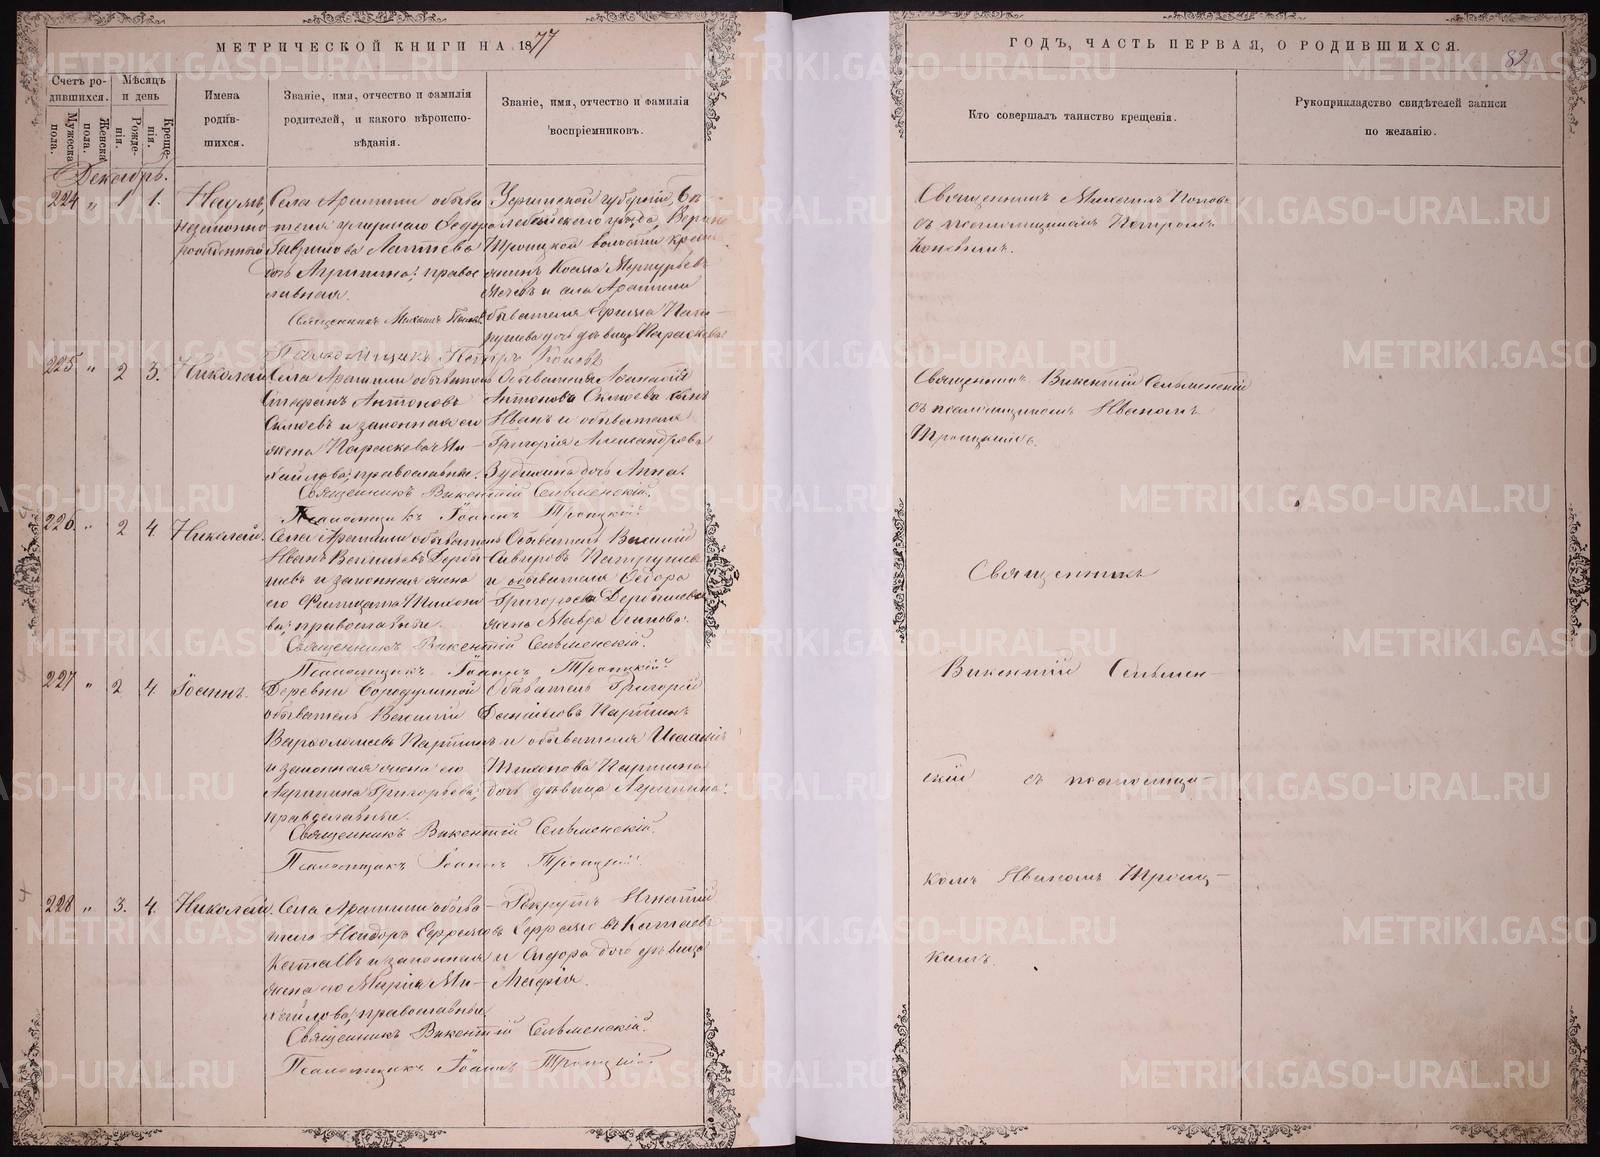 МЕТРИЧЕСКОЙ КНИГИ НА 1877
ГОДЪ, ЧАСТЬ ПЕРВАЯ, О РОДИВШИХСЯ.
82
Счетъ ро-
дившихся.
Мужеска
пола.
Женска
пола.
Мѣсяцъ
и день
Рожде-
нія.
Креще-
нія.
Имена
родив-
шихся.
Званіе, имя, отчество и фамилія
родителей, и какого вѣроиспо-
вѣданія.
Званіе, имя, отчество и фамилія
воспріемниковъ.
Кто совершалъ таинство крещенія.
Рукоприкладство свидѣтелей записи
по желанію.
Декабрь.
224 " 1 1.
Наумъ,
незаконно
рожденный
Села Арамили обыва
теля умершаго Ѳедора
Гаврилова Лаптева
дочь Агрипина, правос
лавная.
Священникъ Михаилъ Поповъ
Псаломщикъ Петръ Коневъ
Уфимской губерніи,
уѣзда, Верхне
Троицкой волости крест
янинъ Козма Меркурьевъ
и села Арамили
обывателя
дочь дѣвица Параскева
Священникъ Михаилъ Поповъ
съ псаломщикомъ Петромъ
Коневымъ.
225 " 2 3.
Николай
Села Арамили обыватель
Стефанъ Антоновъ
и законная его
жена Параскева Ми-
хайлова, православные.
Священникъ Викентій Сельменскій.
Псаломщикъ Іоаннъ Троицкій
Обывателя Аѳанасія
Антонова сынъ
Иванъ и обывателя
Григорія Александрова
дочь Анна.
Священникъ Викентій Сельменскій
съ псаломщикомъ Иваномъ
Троицкимъ.
226 " 2 4.
Николай.
Села Арамили обыватель
Иванъ Васильевъ Дербы
шевъ и законная жена
его Тихоно
ва, православные.
Священникъ Викентій Сельменскій.
Псаломщикъ Іоаннъ Троицкій
Обыватель Василій
Патрушев
и обывателя Ѳедора
Григорьева Дербышева
жена Мавра Осипова.
Священникъ
227 " 2 4
Іоаннъ.
Деревни
обыватель Василій
Варѳоломеевъ Паргинъ
и законная жена его
Агрипина Григорьева,
православные.
Священникъ Викентій Сельменскій.
Псаломщикъ Іоаннъ Троицкій
Обыватель Григорій
Даніиловъ Паргинъ
и обывателя
Тихонова Паргина
дочь дѣвица Агрипина.
Викентій Сельмен-
скій съ псаломщи-
228 " 3. 4.
Николай.
Села Арамили обыва-
тель Исидоръ
и законная
жена его Марія Ми-
хайлова, православные
Священникъ Викентій Сельменскій.
Псаломщикъ Іоаннъ Троицкій
Рекрутъ Игнатій
и Сидора дочь дѣвица
комъ Иваномъ Троиц-
кимъ.
METRIKI.GASO-URAL.RU